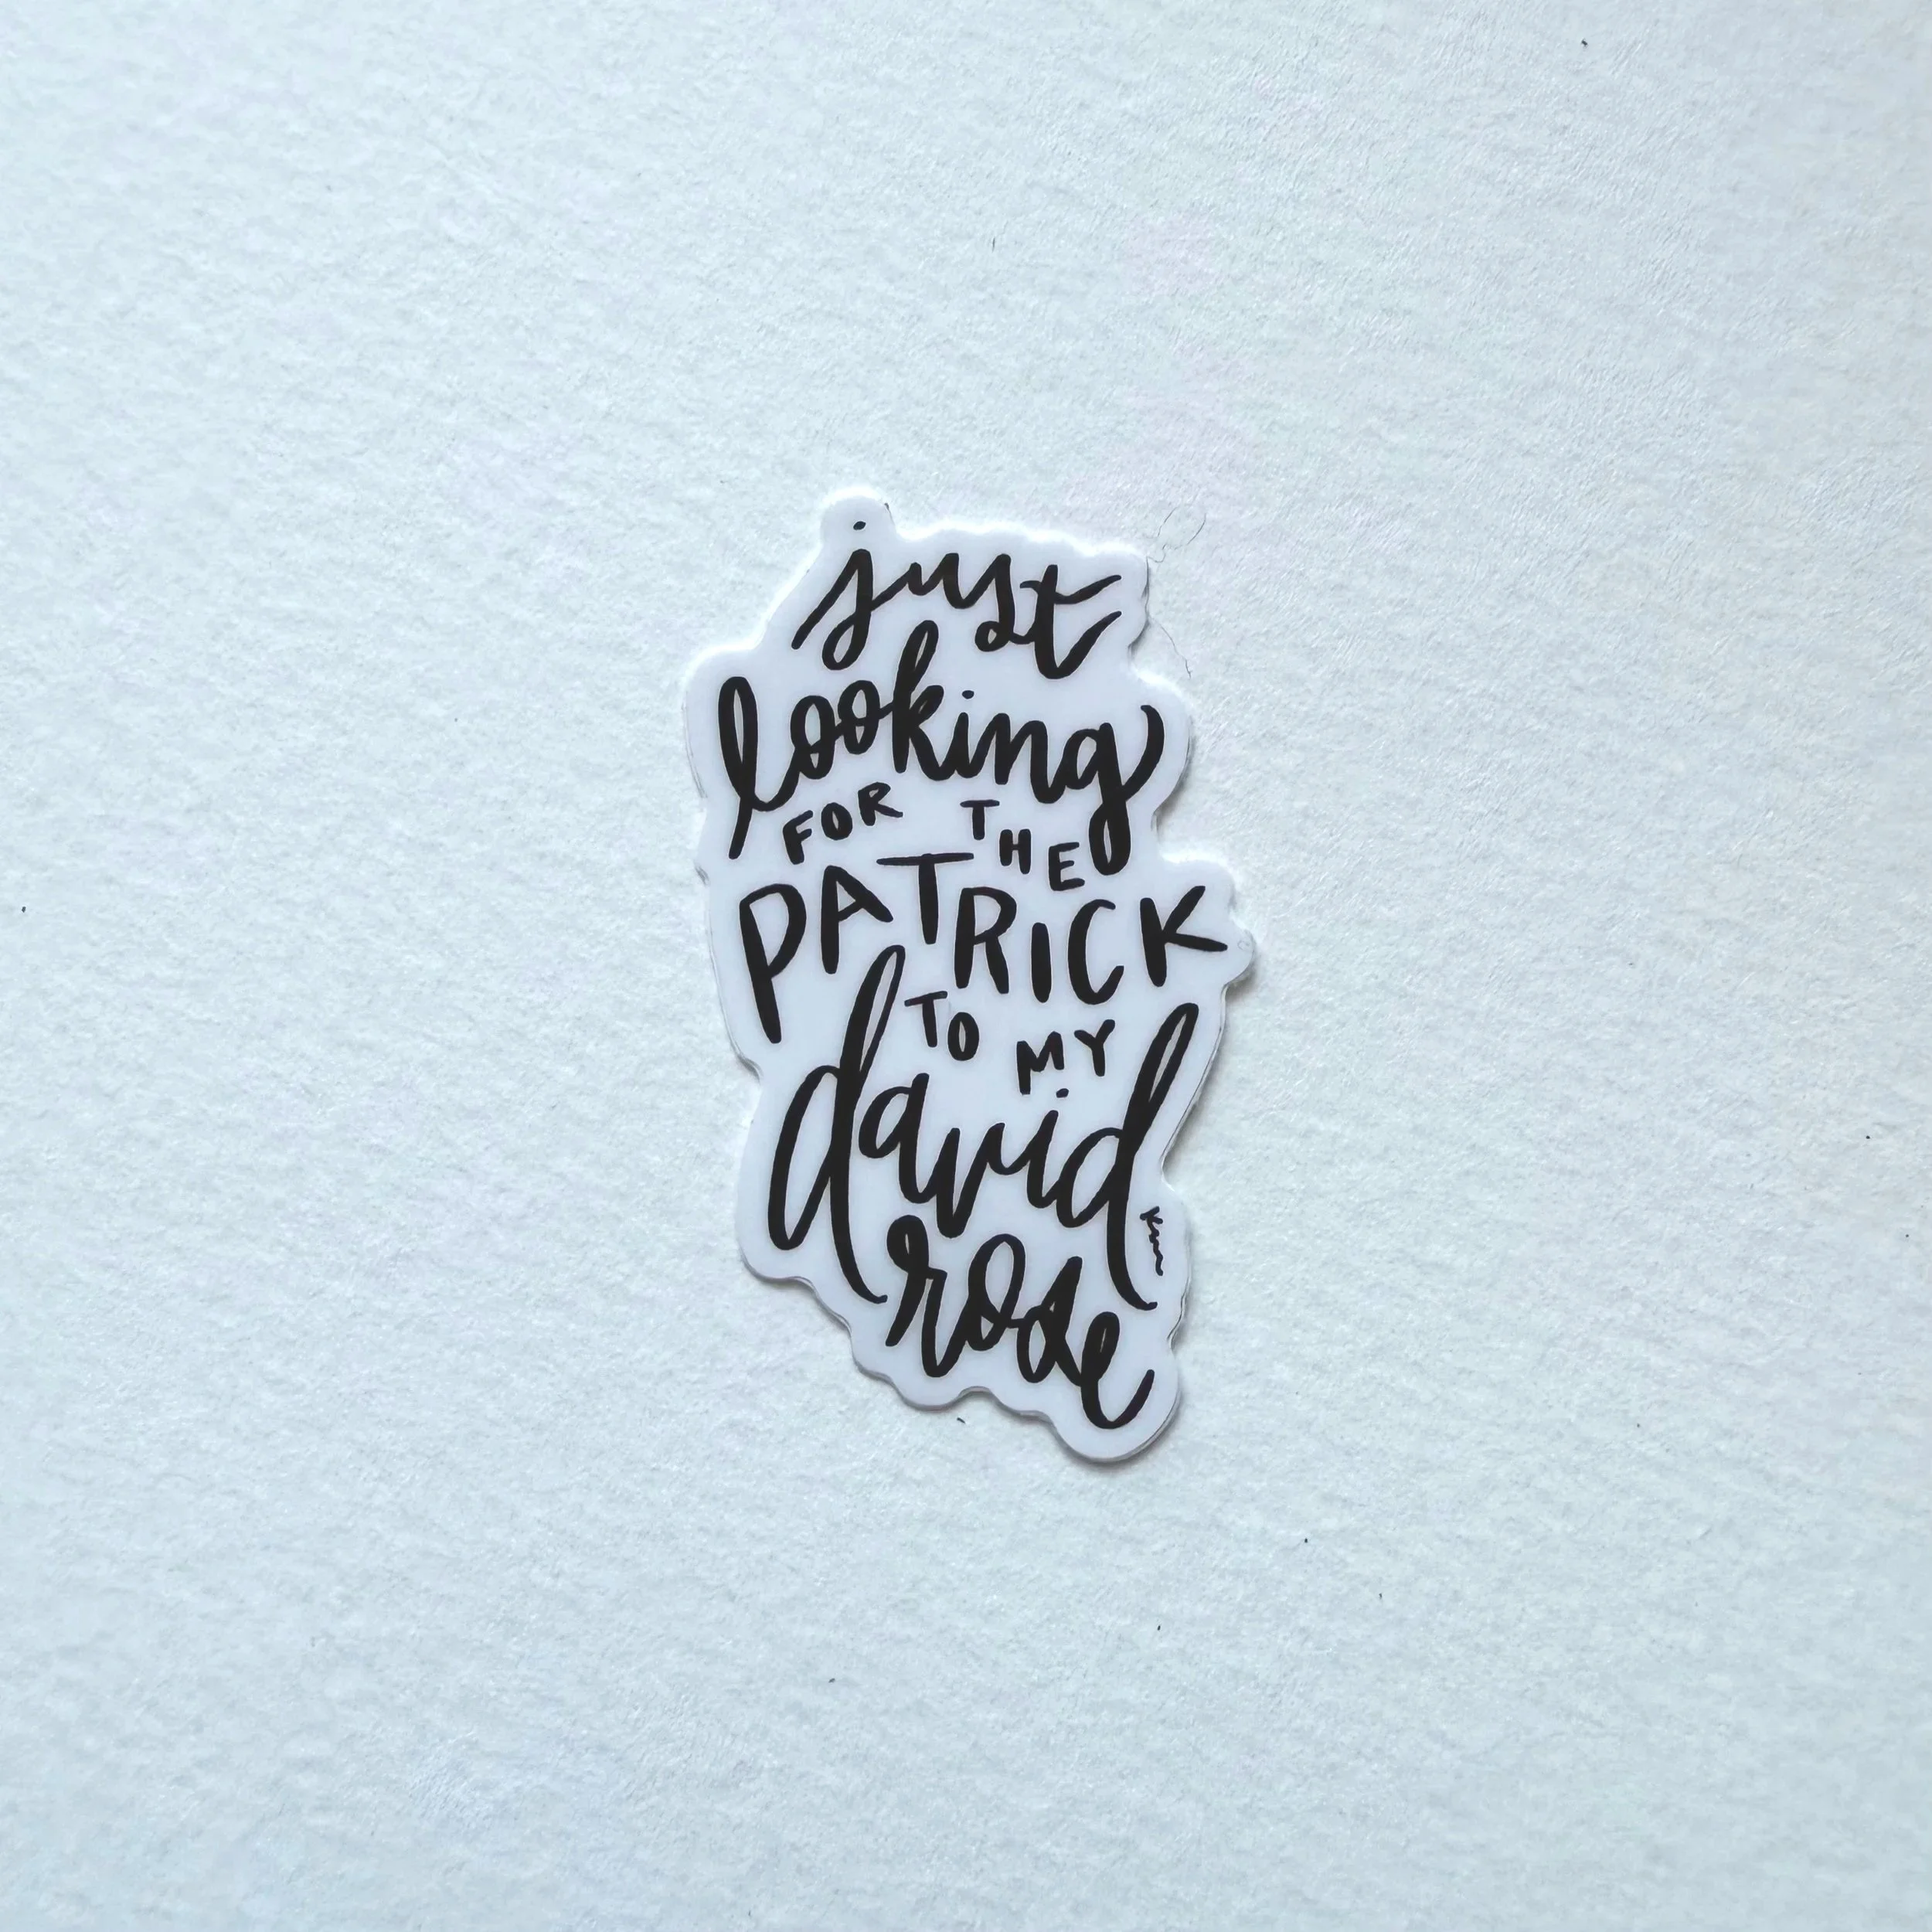 just
looking
FOR THE
PATRICK
TO MY
david
rose